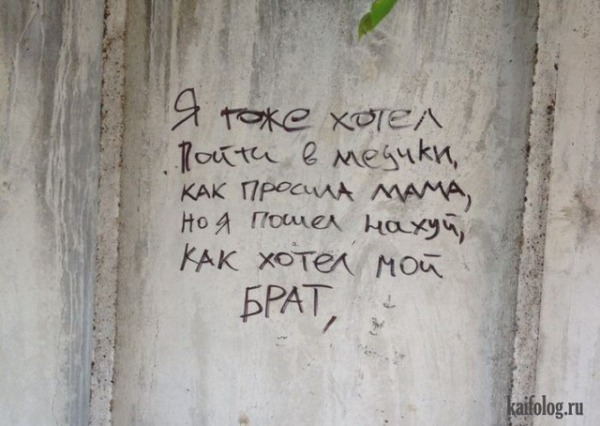 Я тоже хотел
Пойти в медики,
как просила мама,
но я пошел нахуй,
как хотел мой
БРАТ,
kaifolog.ru